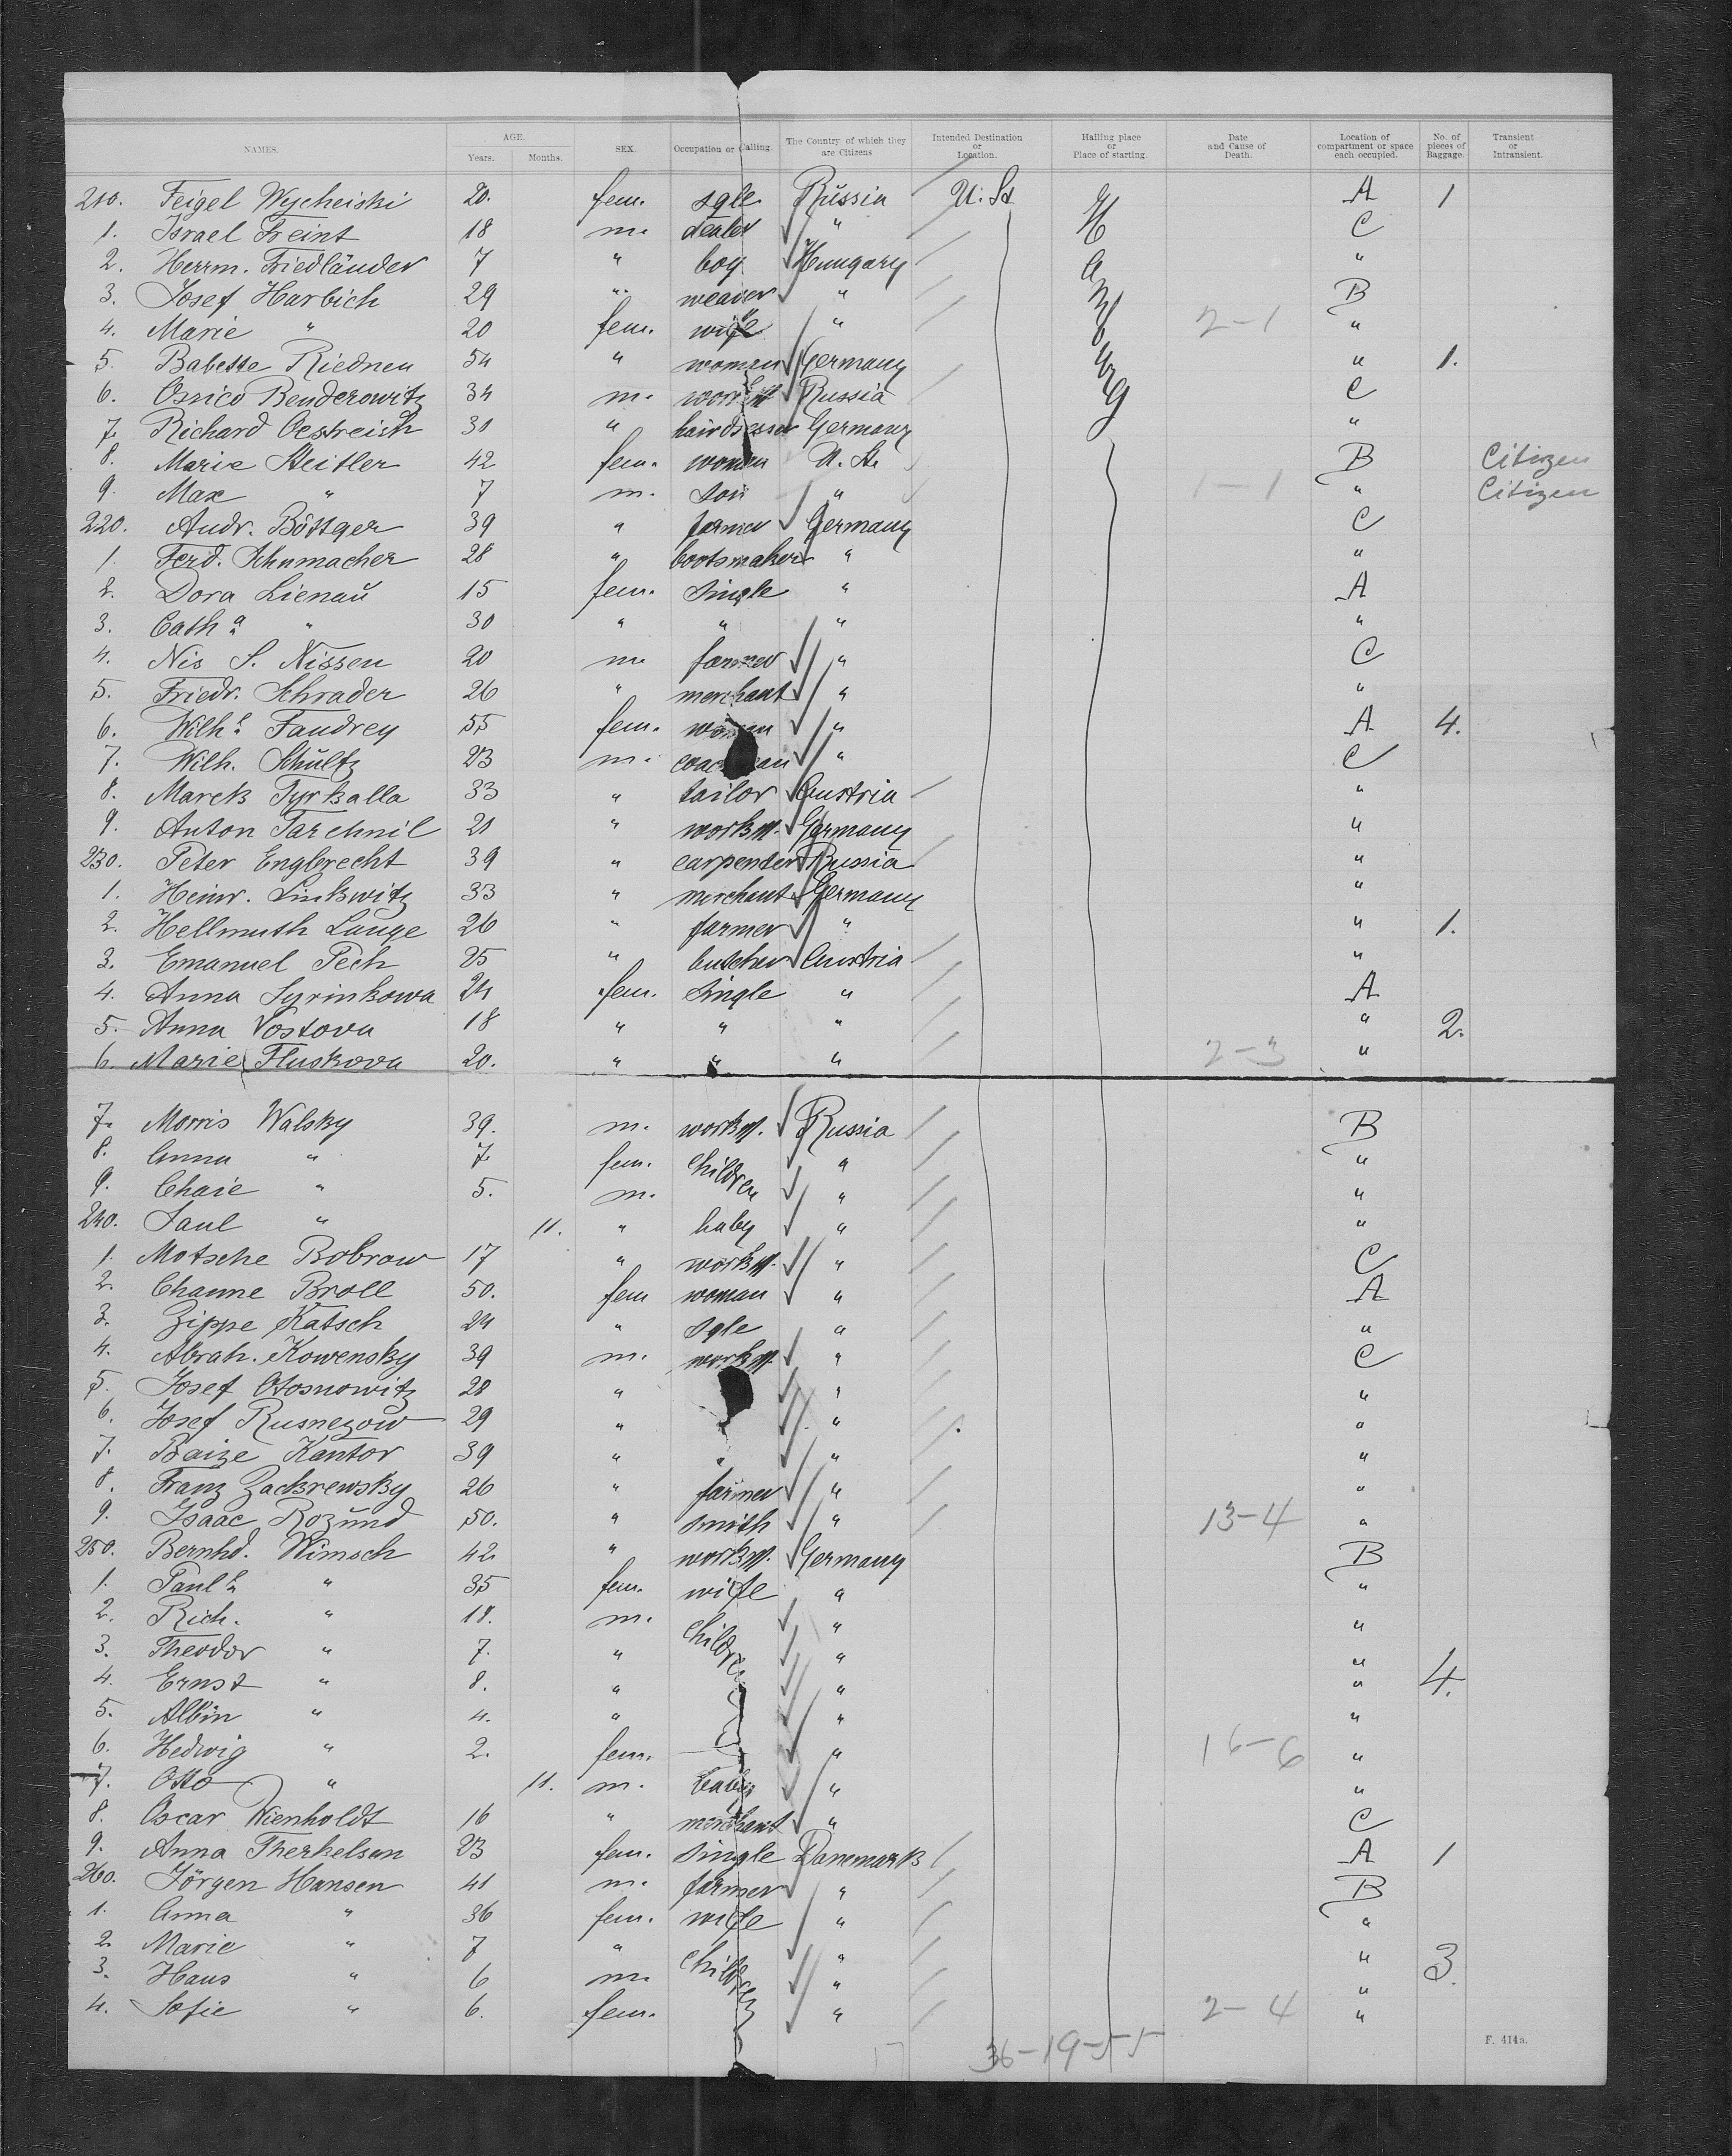 NAMES. AGE. Years. Months. SEX. Occupation or Calling. The Country of which they are Citizens Intended Destination or Location. Hailing place or Place of starting. Date and Cause of Death. Location of compartment or space each occupied. No. of pieces of Baggage. Transient or Intransient.
210. Feigel Wycheiski 20. fem. sgle Russia U. St Hamburg A 1
1. Israel Freint 18 m. dealer " C
2. Herrm. Friedländer 7 " boy Hungary "
3. Josef Harbich 29 " weaver " B
4. Marie " 20 fem. wife " 2-1 "
5. Babette Riednen 54 " woman Germany " 1.
6. Ossico Benderowitz 34 m. Russia C
7. Richard Oestreich 31 " hairdresser Germany "
8. Marie Steitler 42 fem. woman U. St. B Citizen
9. Max " 7 m. son " 1-1 " Citizen
220. Andr. Böttger 39 " farmer Germany C
1. Ferd. Schumacher 28 " bootsmaker " "
2. Dora Lienau 15 fem. single " A
3. Cath a " 30 " " " "
4. Nis S. Nissen 20 m. farmer " C
5. Friedr. Schrader 26 " merchant " "
6. Wilh e Faudrey 55 fem. woman " A 4.
7. Wilh. Schultz 23 m. " C
8. Marek Tyrkalla 33 " tailor Austria "
9. Anton Tarchnil 21 " workm. Germany "
230. Peter Engbrecht 39 " carpender Russia "
1. Heinr. Linkwitz 33 " merchant Germany "
2. Hellmuth Lange 26 " farmer " " 1.
3. Emanuel Pech 25 " butcher Austria "
4. Anna Syrinkowa 24 fem. single " A
5. Anna Vostova 18 " " " " 2.
6. Marie Fluskova 20. " " " 2-3 "
7. Morris Walsky 39. m. workm. Russia B
8. Anna " 7 fem. children " "
9. Chaie " 5. m. " "
240. Saul " 11. " baby " "
1. Motsche Bobrow 17 " workm. " C
2. Channe Broll 50. fem woman " A
3. Zippe Katsch 24 " sgle " "
4. Abrah. Kowensky 39 m. workm. " C
5. Josef Otosnowitz 28 " " "
6. Josef Rusnezow 29 " " "
7. Baize Kantor 39 " " " "
8. Franz Zackrewsky 26 " farmer " "
9. Isaac Rozund 50. " smith " 13-4 "
250. Bernhd. Wimsch 42 " workm. Germany B
1. Paul e " 35 fem. wife " "
2. Rich. " 11. m. children " "
3. Theodor " 7. " " "
4. Ernst " 8. " " " 4.
5. Albin " 4. " " "
6. Hedwig " 2. fem. " 16-6 "
7. Otto " 11. m. baby " "
8. Oscar Wienholdt 16 " merchant " C
9. Anna Therkelsen 23 fem. single Danemark A 1
260. Jörgen Hansen 41 m. farmer " B
1. Anna " 36 fem. wife " "
2. Marie " 7 " children " " 3.
3. Hans " 6 m. " "
4. Sofie " 6. fem. " 2-4 "
36-19-55
F. 414a.